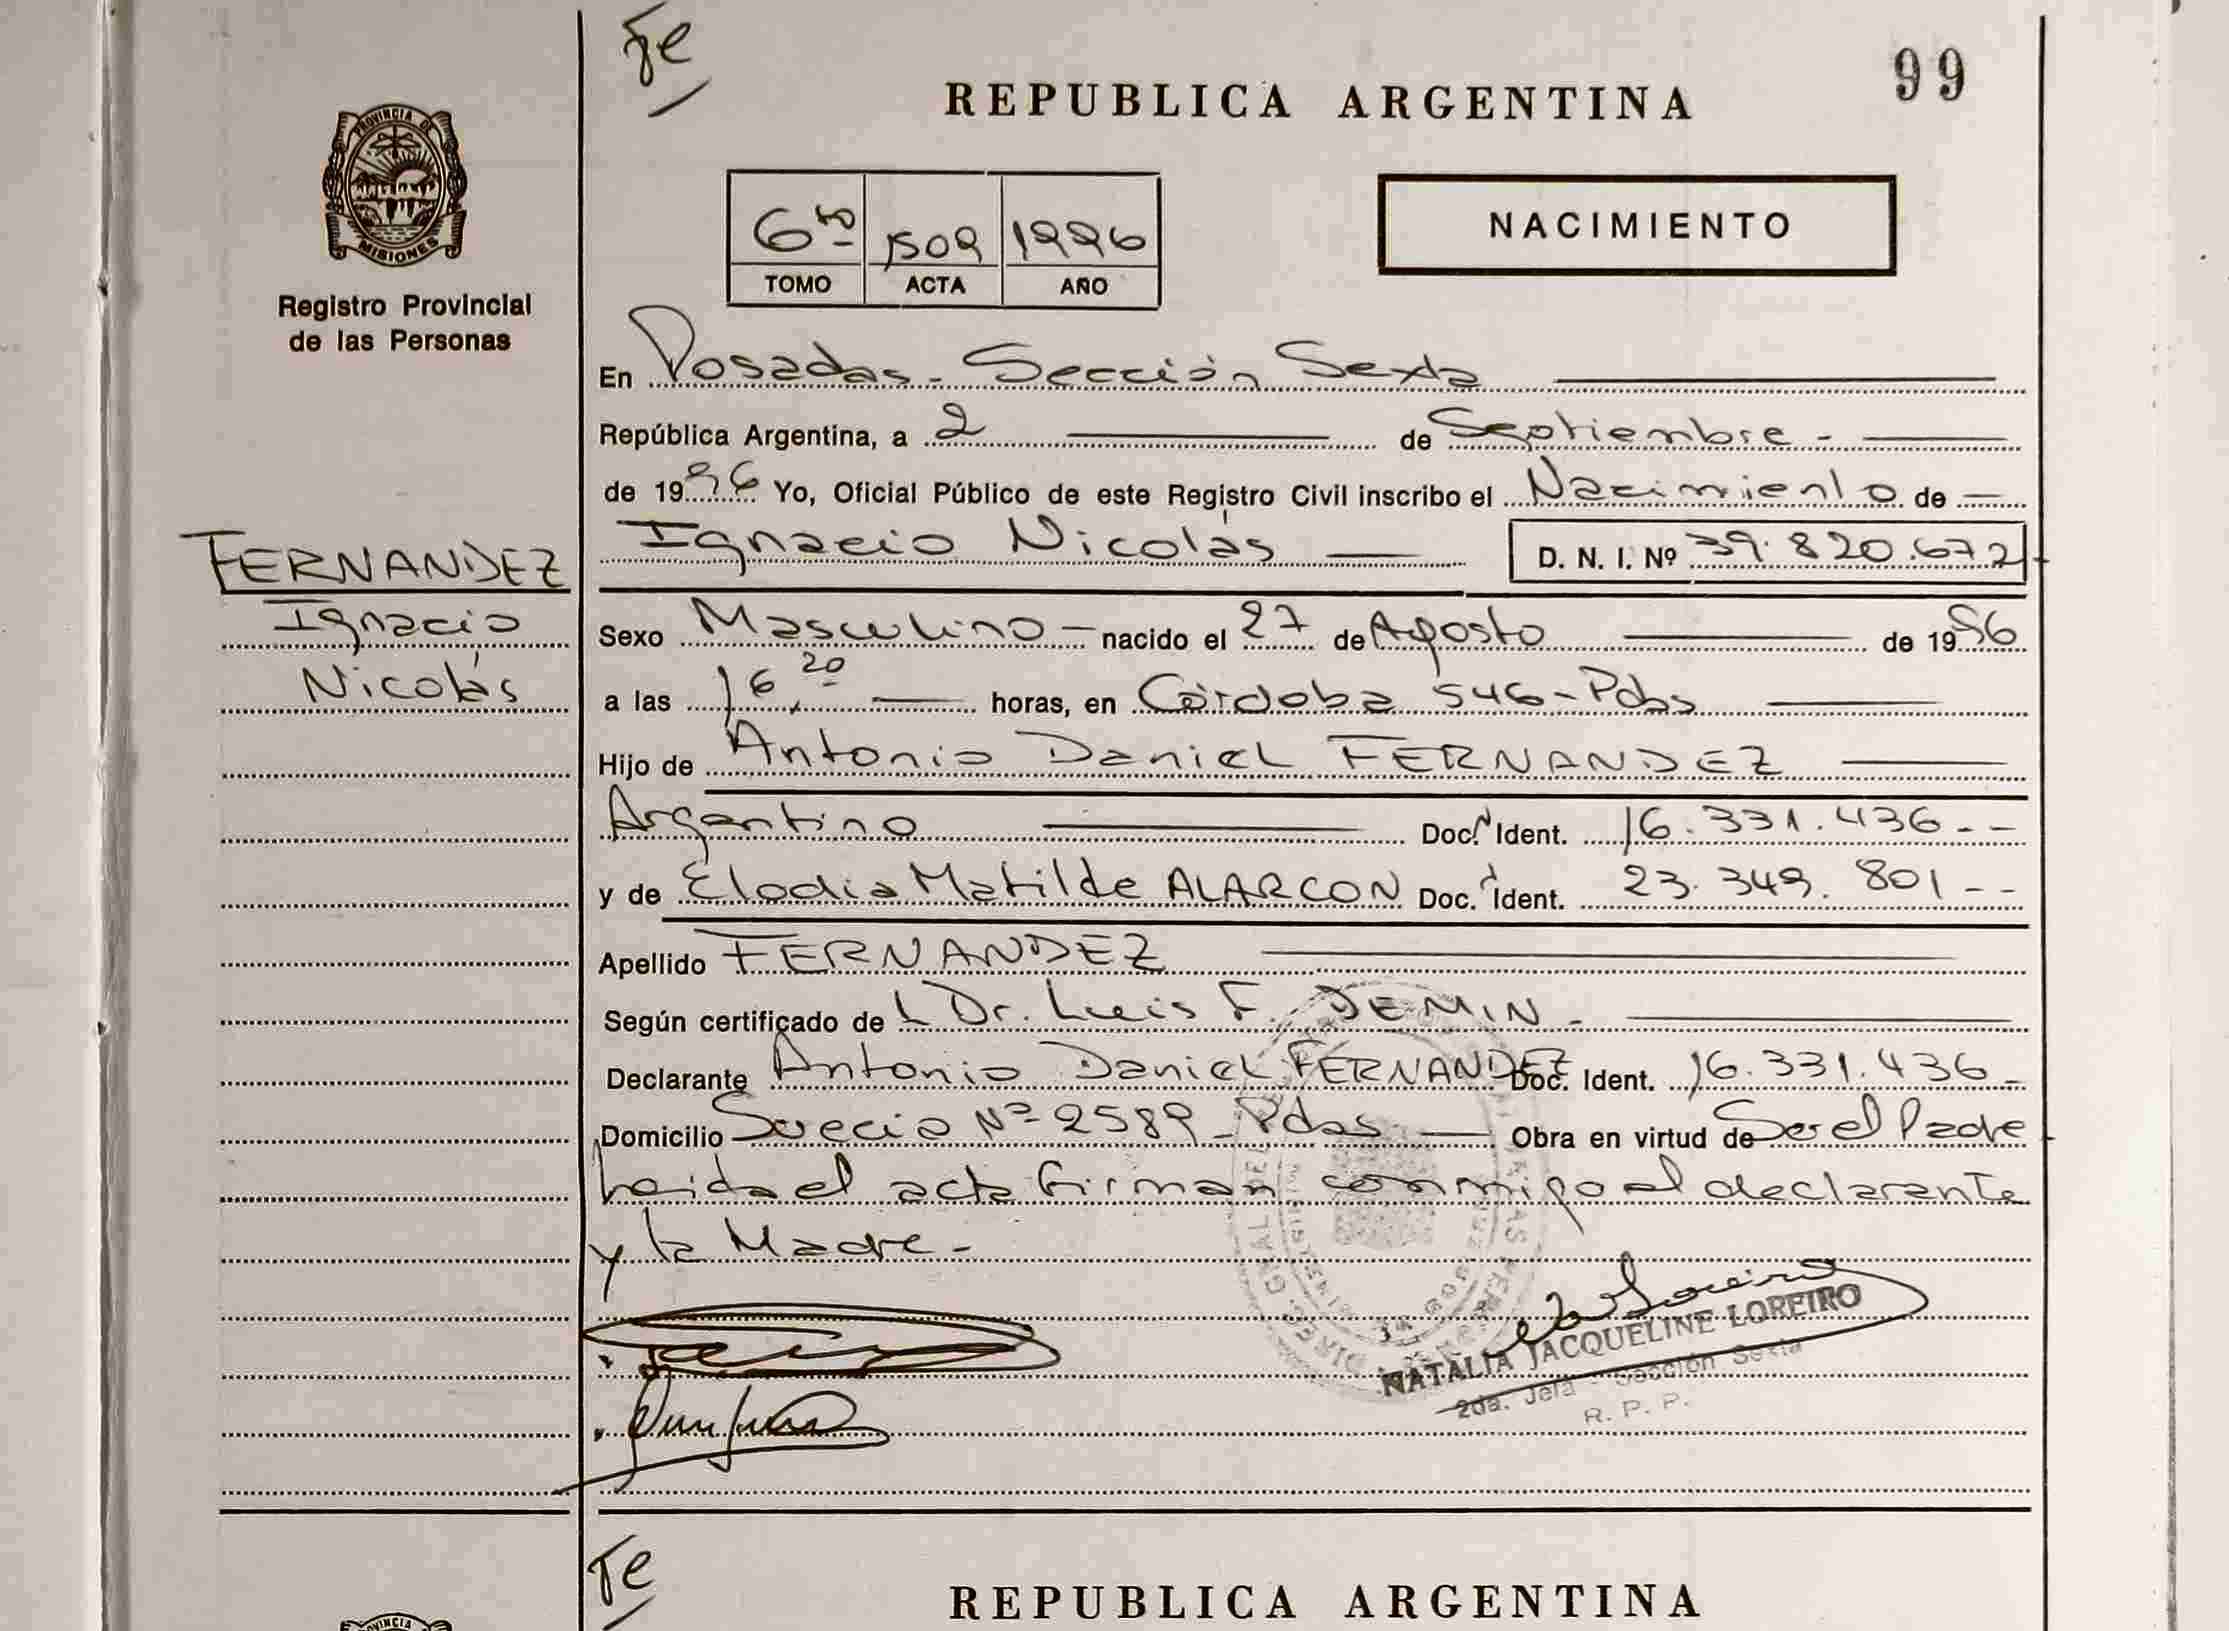 Fe
REPUBLICA ARGENTINA
99
PROVINCIA DE
MISIONES
Registro Provincial
de las Personas
6to 1509 1996
TOMO ACTA AÑO
NACIMIENTO
En Posadas - Sección Sexta
República Argentina, a 2 de Septiembre -
de 1996 Yo, Oficial Público de este Registro Civil inscribo el Nacimiento de
Ignacio Nicolás D. N. I. Nº 39.820.672
FERNANDEZ
Ignacio
Nicolás
Sexo Masculino - nacido el 27 de Agosto de 1996
a las 16,20 horas, en Córdoba 546 - Pdas
Hijo de Antonio Daniel FERNANDEZ
Argentino Doc. Ident. 16.331.436 - -
y de Elodia Matilde ALARCON Doc. Ident. 23.349.801 - -
Apellido FERNANDEZ
Según certificado de L Dr. Luis F. DEMIN -
Declarante Antonio Daniel FERNANDEZ Doc. Ident. 16.331.436 -
Domicilio Suecia Nº 2589 - Pdas - Obra en virtud de Ser el Padre
Leida el acta firman conmigo el declarante
y la Madre -
NATALIA JACQUELINE LOREIRO
2da. Jefa - Sección Sexta
R. P. P.
Fe
REPUBLICA ARGENTINA